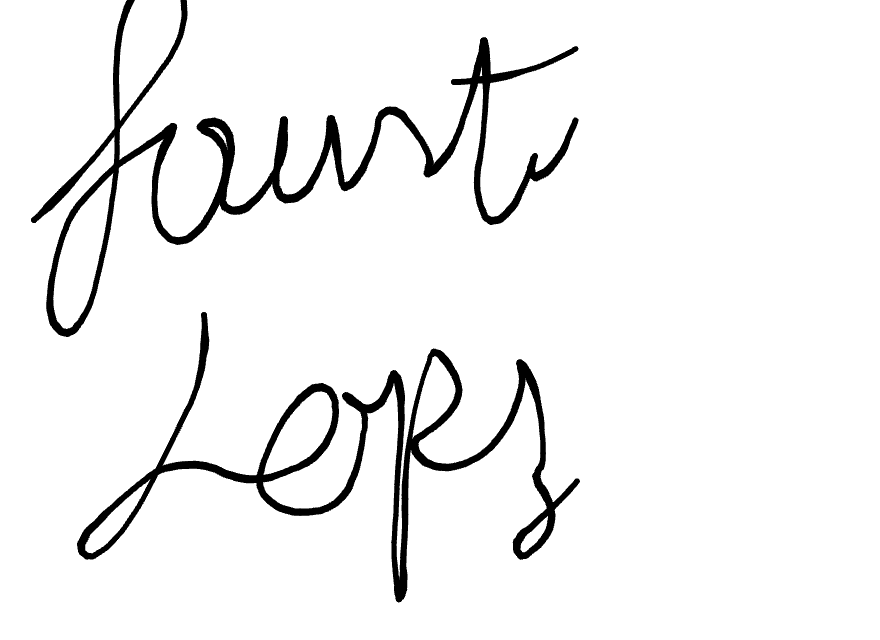 faust
Lopes